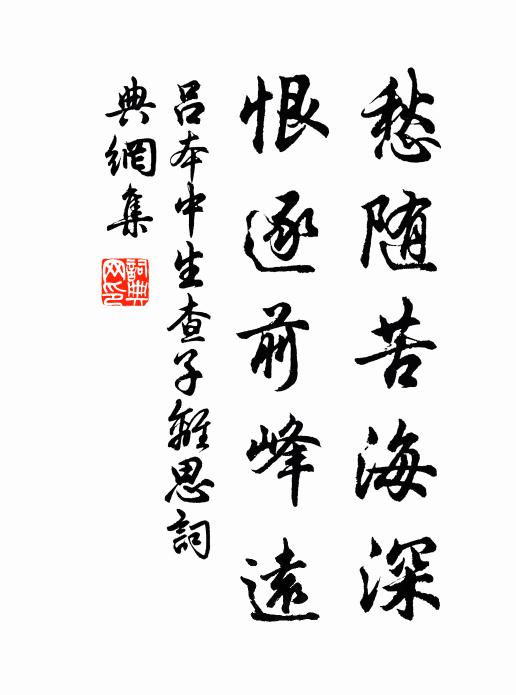 愁随苦海深
恨逐前峰遠
呂本中生查子離思詞
典網集
詞典網印